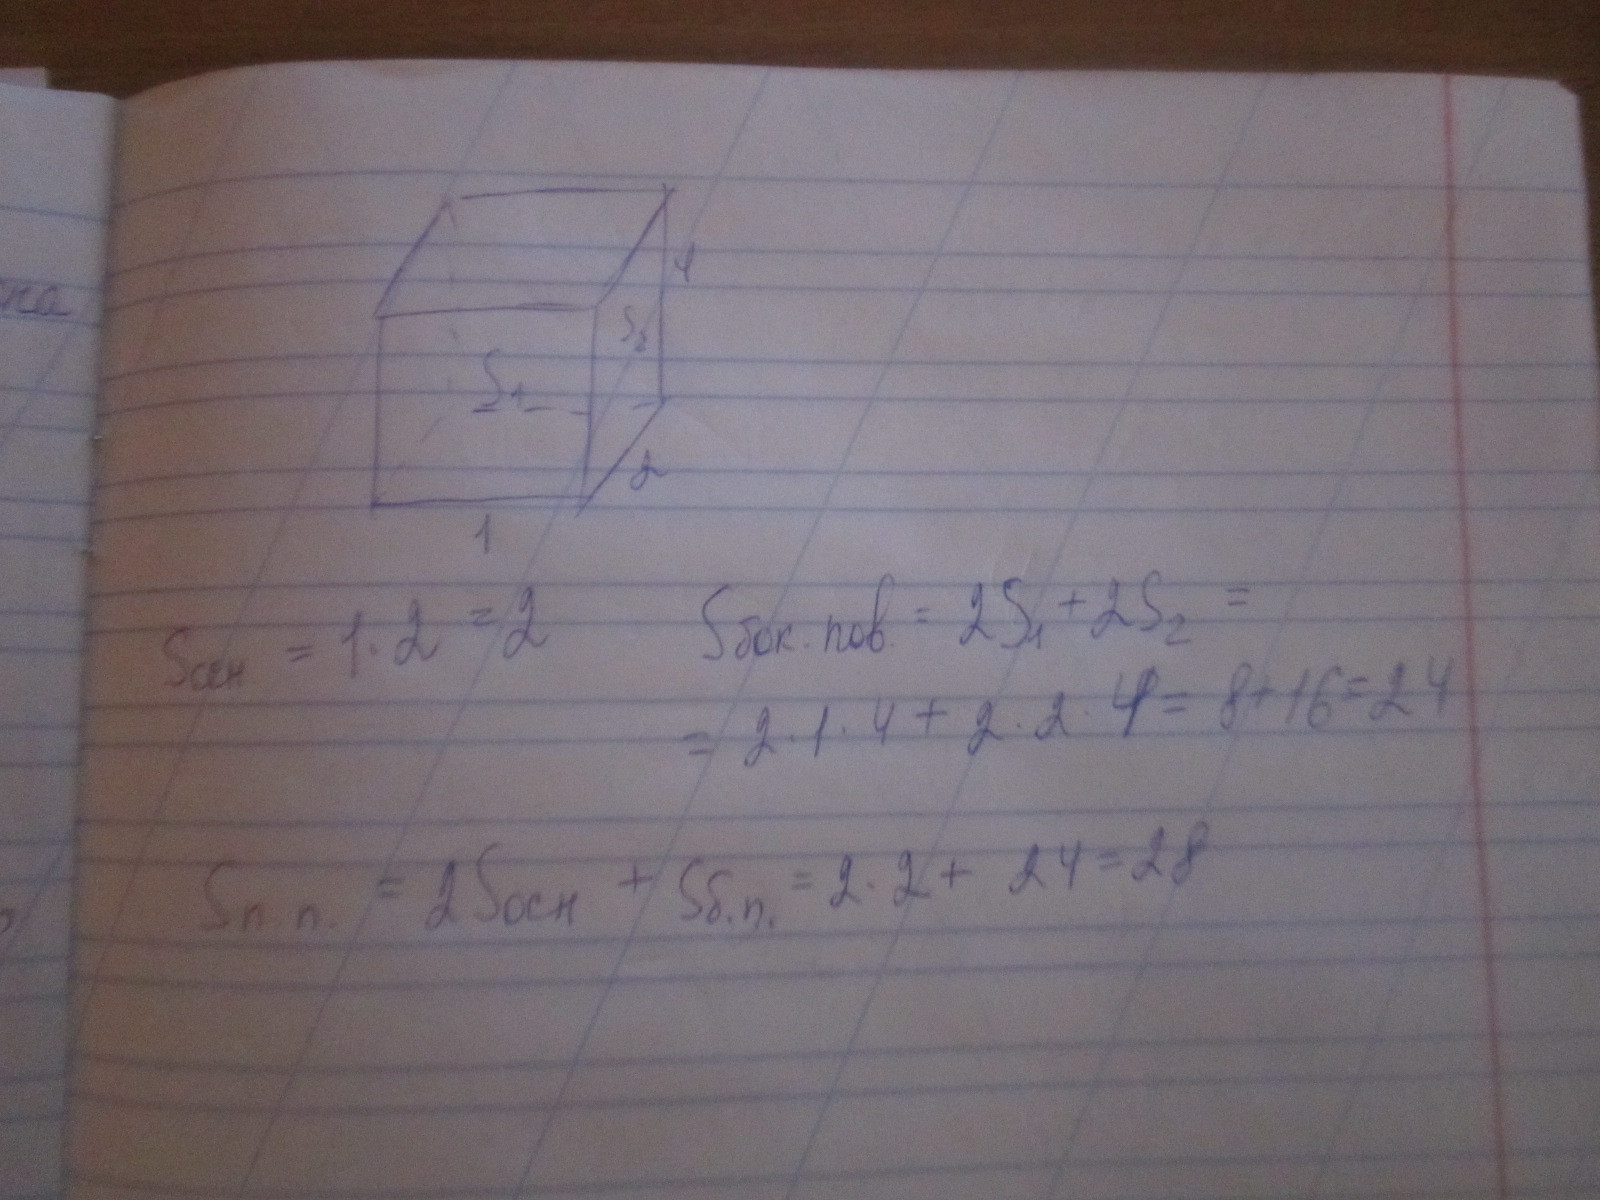 ка
4
S₂
S₁
2
1
Sосн = 1·2 = 2
Sбок.пов. = 2S₁ + 2S₂ =
= 2·1·4 + 2·2·4 = 8+16=24
Sп.п. = 2Sосн + Sб.п. = 2·2 + 24 = 28